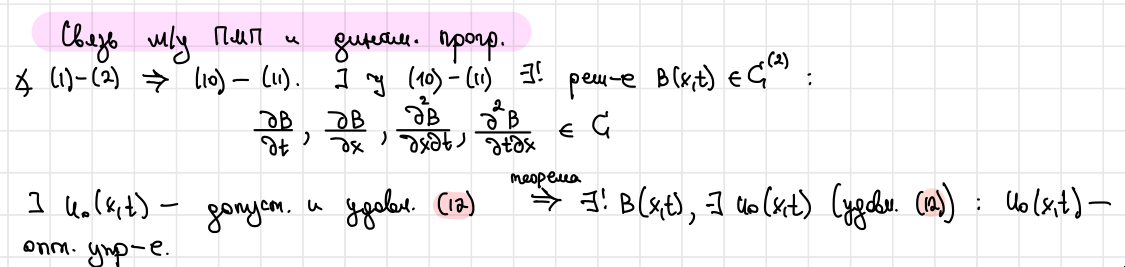 Связь м/у ПМП и динам. прогр.
∡ (1)-(2) ⇒ (10)-(11). ∃ у (10)-(11) ∃! реш-е B(x,t) ∈ C^(2) :
∂B/∂t, ∂B/∂x, ∂²B/∂x∂t, ∂²B/∂t∂x ∈ C
∃ u₀(x,t) – допуст. и удовл. (12) теорема ⇒ ∃! B(x,t), ∃ u₀(x,t) (удовл. (12)) : u₀(x,t) –
опт. упр-е.